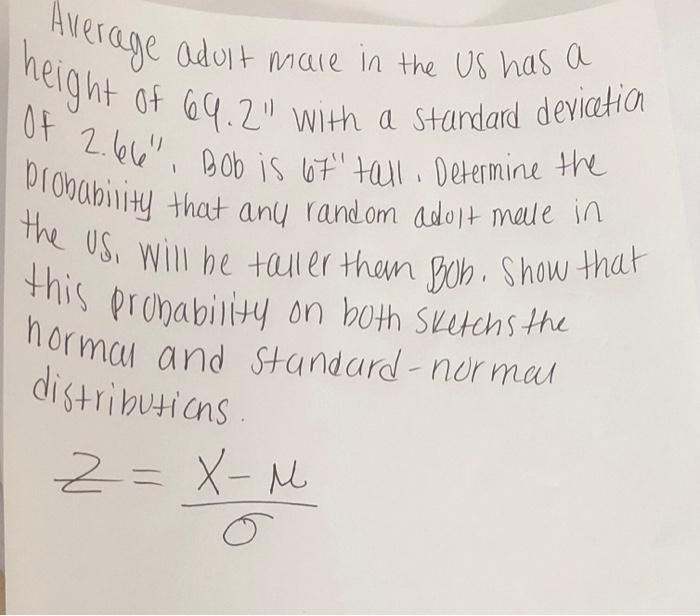 Average adult male in the US has a
height of 69.2" with a standard deviation
of 2.66". Bob is 67" tall. Determine the
probability that any random adult male in
the US. will be taller than Bob. Show that
this probability on both sketchs the
normal and standard-normal
distributions.
Z = X - μ
σ